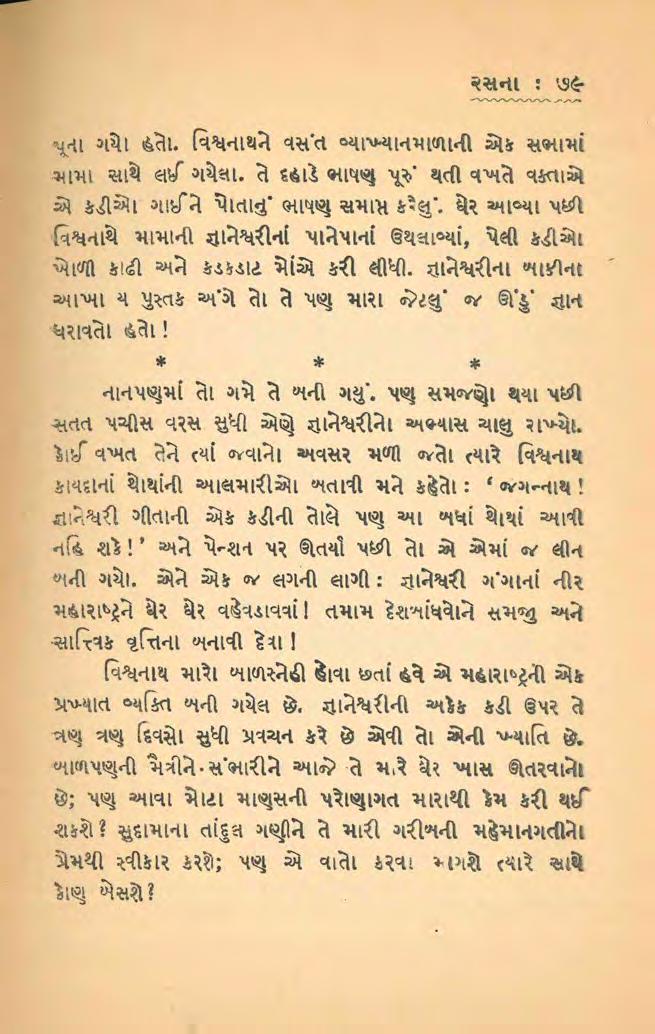 રસના : ૭૯
પૂના ગયો હતો. વિશ્વનાથને વસંત વ્યાખ્યાનમાળાની એક સભામાં
મામા સાથે લઈ ગયેલા. તે દહાડે ભાષણ પૂરું થતી વખતે વક્તાએ
એ કડીઓ ગાઈને પોતાનું ભાષણ સમાપ્ત કરેલું. ઘેર આવ્યા પછી
વિશ્વનાથે મામાની જ્ઞાનેશ્વરીનાં પાનેપાનાં ઉથલાવ્યાં, પેલી કડીઓ
ખોળી કાઢી અને કડકડાટ મોંએ કરી લીધી. જ્ઞાનેશ્વરીના બાકીના
આખા ય પુસ્તક અંગે તો તે પણ મારા જેટલું જ ઊંડું જ્ઞાન
ધરાવતો હતો !
* * *
નાનપણમાં તો ગમે તે બની ગયું. પણ સમજણો થયા પછી
સતત પચીસ વરસ સુધી એણે જ્ઞાનેશ્વરીનો અભ્યાસ ચાલુ રાખ્યો.
કોઈ વખત તેને ત્યાં જવાનો અવસર મળી જતો ત્યારે વિશ્વનાથ
કાયદાનાં થોથાંની આલમારીઓ બતાવી મને કહેતો : ‘ જગન્નાથ !
જ્ઞાનેશ્વરી ગીતાની એક કડીની તોલે પણ આ બધાં થોથાં આવી
નહિ શકે !’ અને પેન્શન પર ઊતર્યા પછી તો એ એમાં જ લીન
બની ગયો. એને એક જ લગની લાગી : જ્ઞાનેશ્વરી ગંગાનાં નીર
મહારાષ્ટ્રને ઘેર ઘેર વહેવડાવવાં ! તમામ દેશબાંધવોને સમજુ અને
સાત્ત્વિક વૃત્તિના બનાવી દેવા !
વિશ્વનાથ મારો બાળસ્નેહી હોવા છતાં હવે એ મહારાષ્ટ્રની એક
પ્રખ્યાત વ્યક્તિ બની ગયેલ છે. જ્ઞાનેશ્વરીની અકેક કડી ઉપર તે
ત્રણ ત્રણ દિવસો સુધી પ્રવચન કરે છે એવી તો એની ખ્યાતિ છે.
બાળપણની મૈત્રીને સંભારીને આજે તે મારે ઘેર ખાસ ઊતરવાનો
છે; પણ આવા મોટા માણસની પરોણાગત મારાથી કેમ કરી થઈ
શકશે ? સુદામાના તાંદુલ ગણીને તે મારી ગરીબની મહેમાનગતીનો
પ્રેમથી સ્વીકાર કરશે; પણ એ વાતો કરવા માગશે ત્યારે સાથે
કોણ બેસશે ?